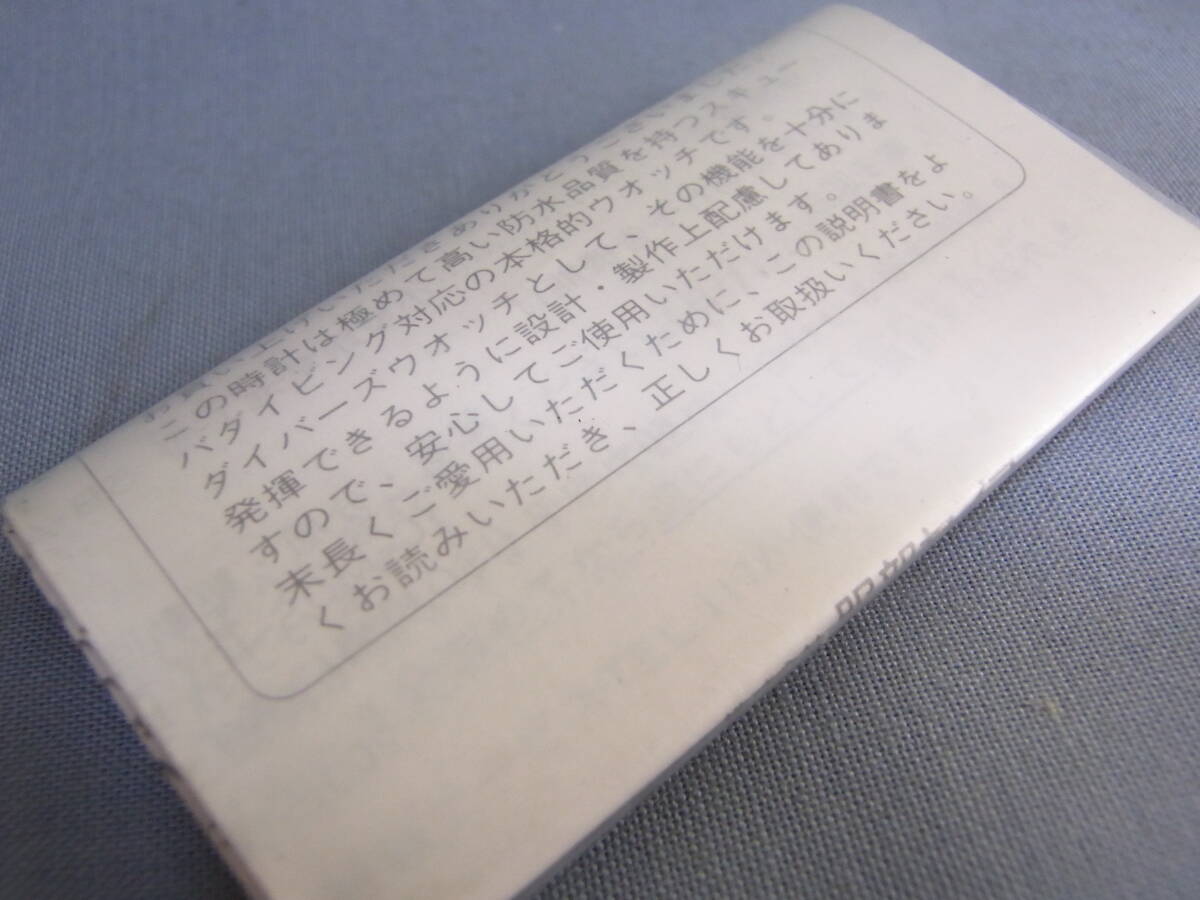 お買い上げいただきありがとうございました。
この時計は極めて高い防水品質を持つスキュー
バダイビング対応の本格的ウオッチです。
ダイバーズウオッチとして、その機能を十分に
発揮できるように設計・製作上配慮してありま
すので、安心してご使用いただけます。
末長くご愛用いただくために、この説明書をよ
くお読みいただき、正しくお取扱いください。
服部